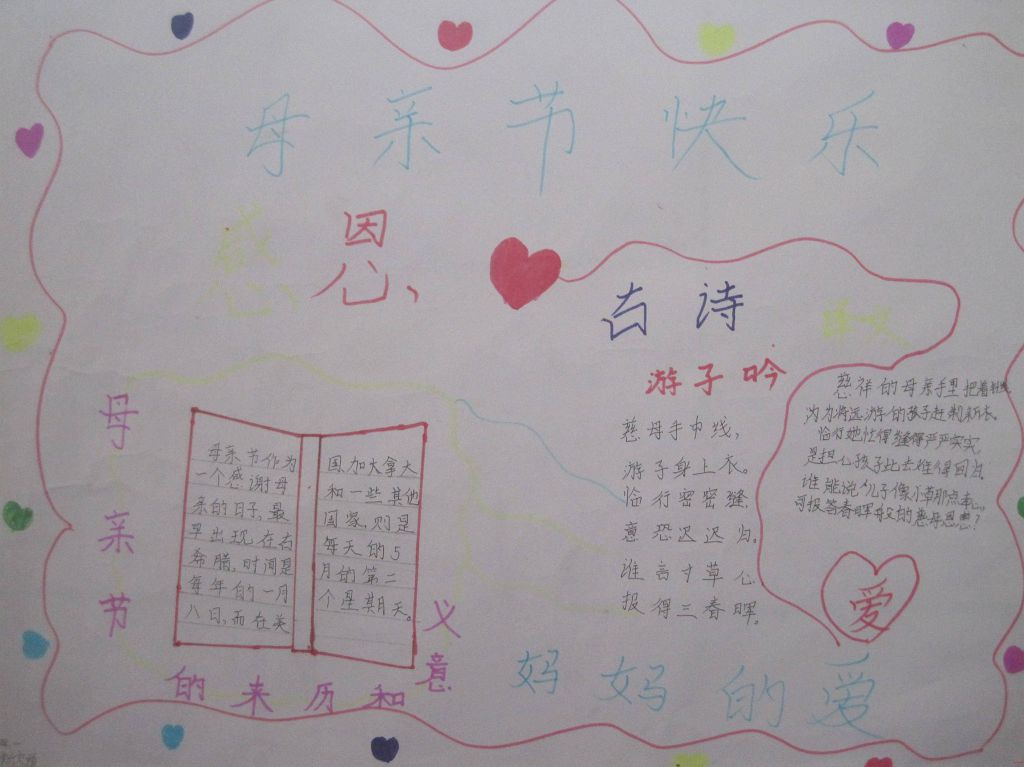 母亲节快乐
感恩、
古诗
译文
游子吟
慈母手中线，
游子身上衣。
临行密密缝，
意恐迟迟归。
谁言寸草心，
报得三春晖。
慈祥的母亲手里把着针线
为将远游的孩子赶制新衣。
临行她忙得缝得严严实实
是担心孩子此去难得回归。
谁能说 儿子像小草那点孝心
可报答春晖 的慈母恩惠？
爱
母亲节
的来历和意义
母亲节作为
一个感谢母
亲的日子，最
早出现在古
希腊，时间是
每年的一月
八日，而在美
国、加大拿大
和一些其他
国家，则是
每天的5
月的第二
个星期天。
妈妈的爱